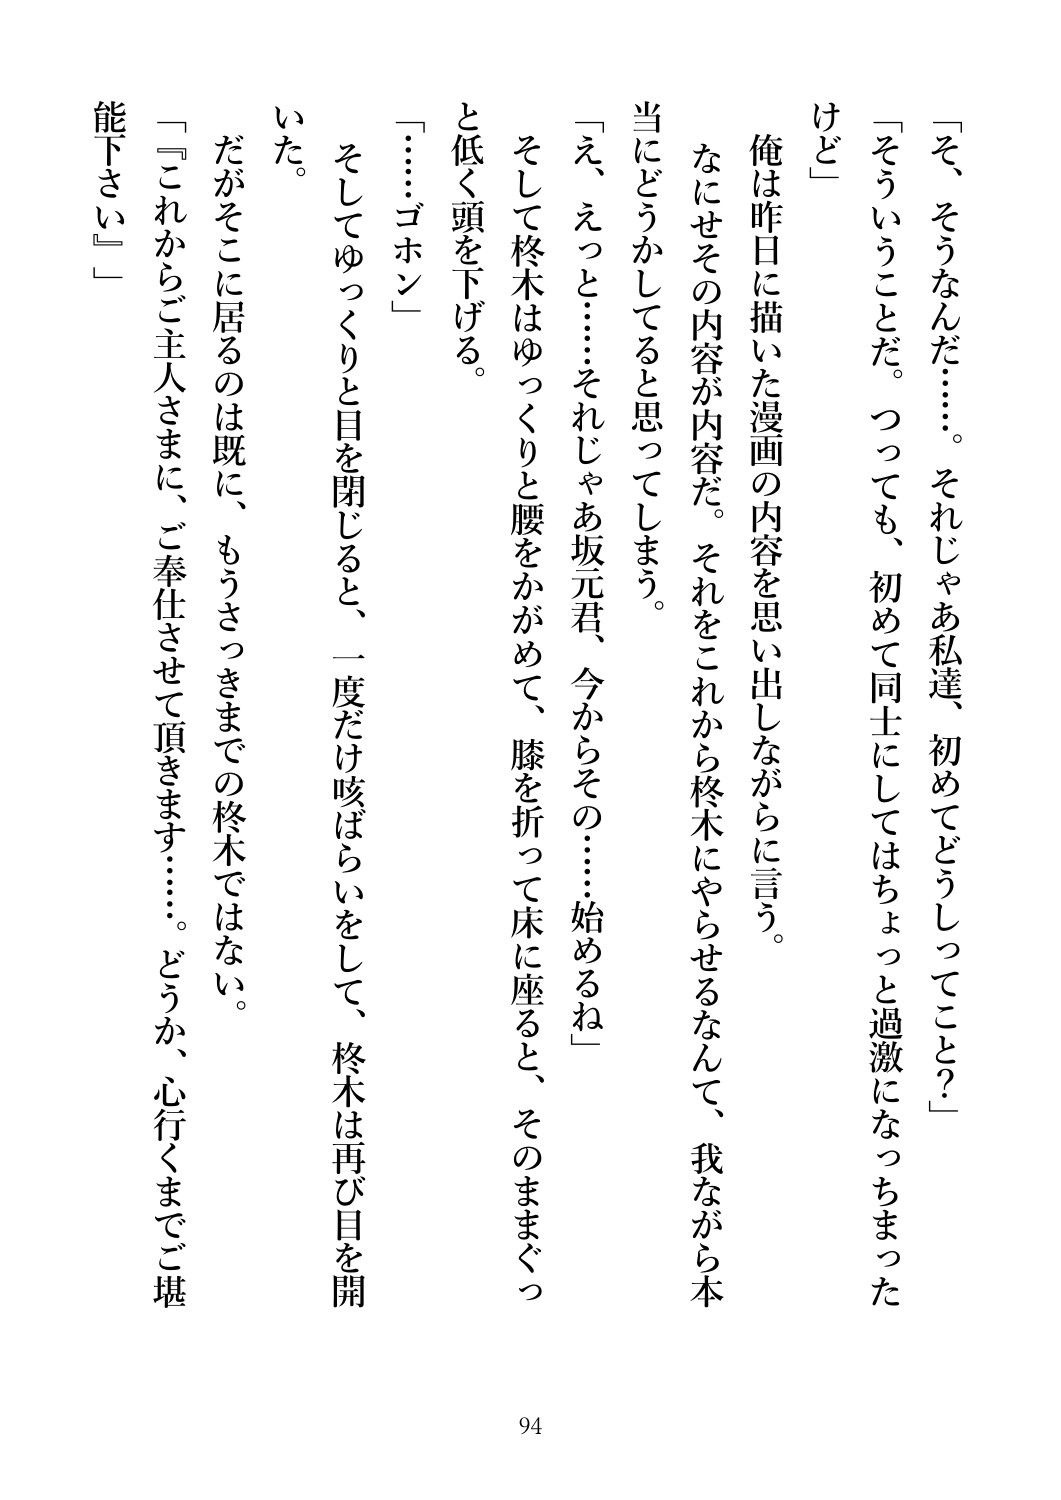 「そ、そうなんだ……。それじゃあ私達、初めてどうしってこと？」
「そういうことだ。つっても、初めて同士にしてはちょっと過激になっちまった
けど」
俺は昨日に描いた漫画の内容を思い出しながらに言う。
なにせその内容が内容だ。それをこれから柊木にやらせるなんて、我ながら本
当にどうかしてると思ってしまう。
「え、えっと……それじゃあ坂元君、今からその……始めるね」
そして柊木はゆっくりと腰をかがめて、膝を折って床に座ると、そのままぐっ
と低く頭を下げる。
「……ゴホン」
そしてゆっくりと目を閉じると、一度だけ咳ばらいをして、柊木は再び目を開
いた。
だがそこに居るのは既に、もうさっきまでの柊木ではない。
「『これからご主人さまに、ご奉仕させて頂きます……。どうか、心行くまでご堪
能下さい』」
94